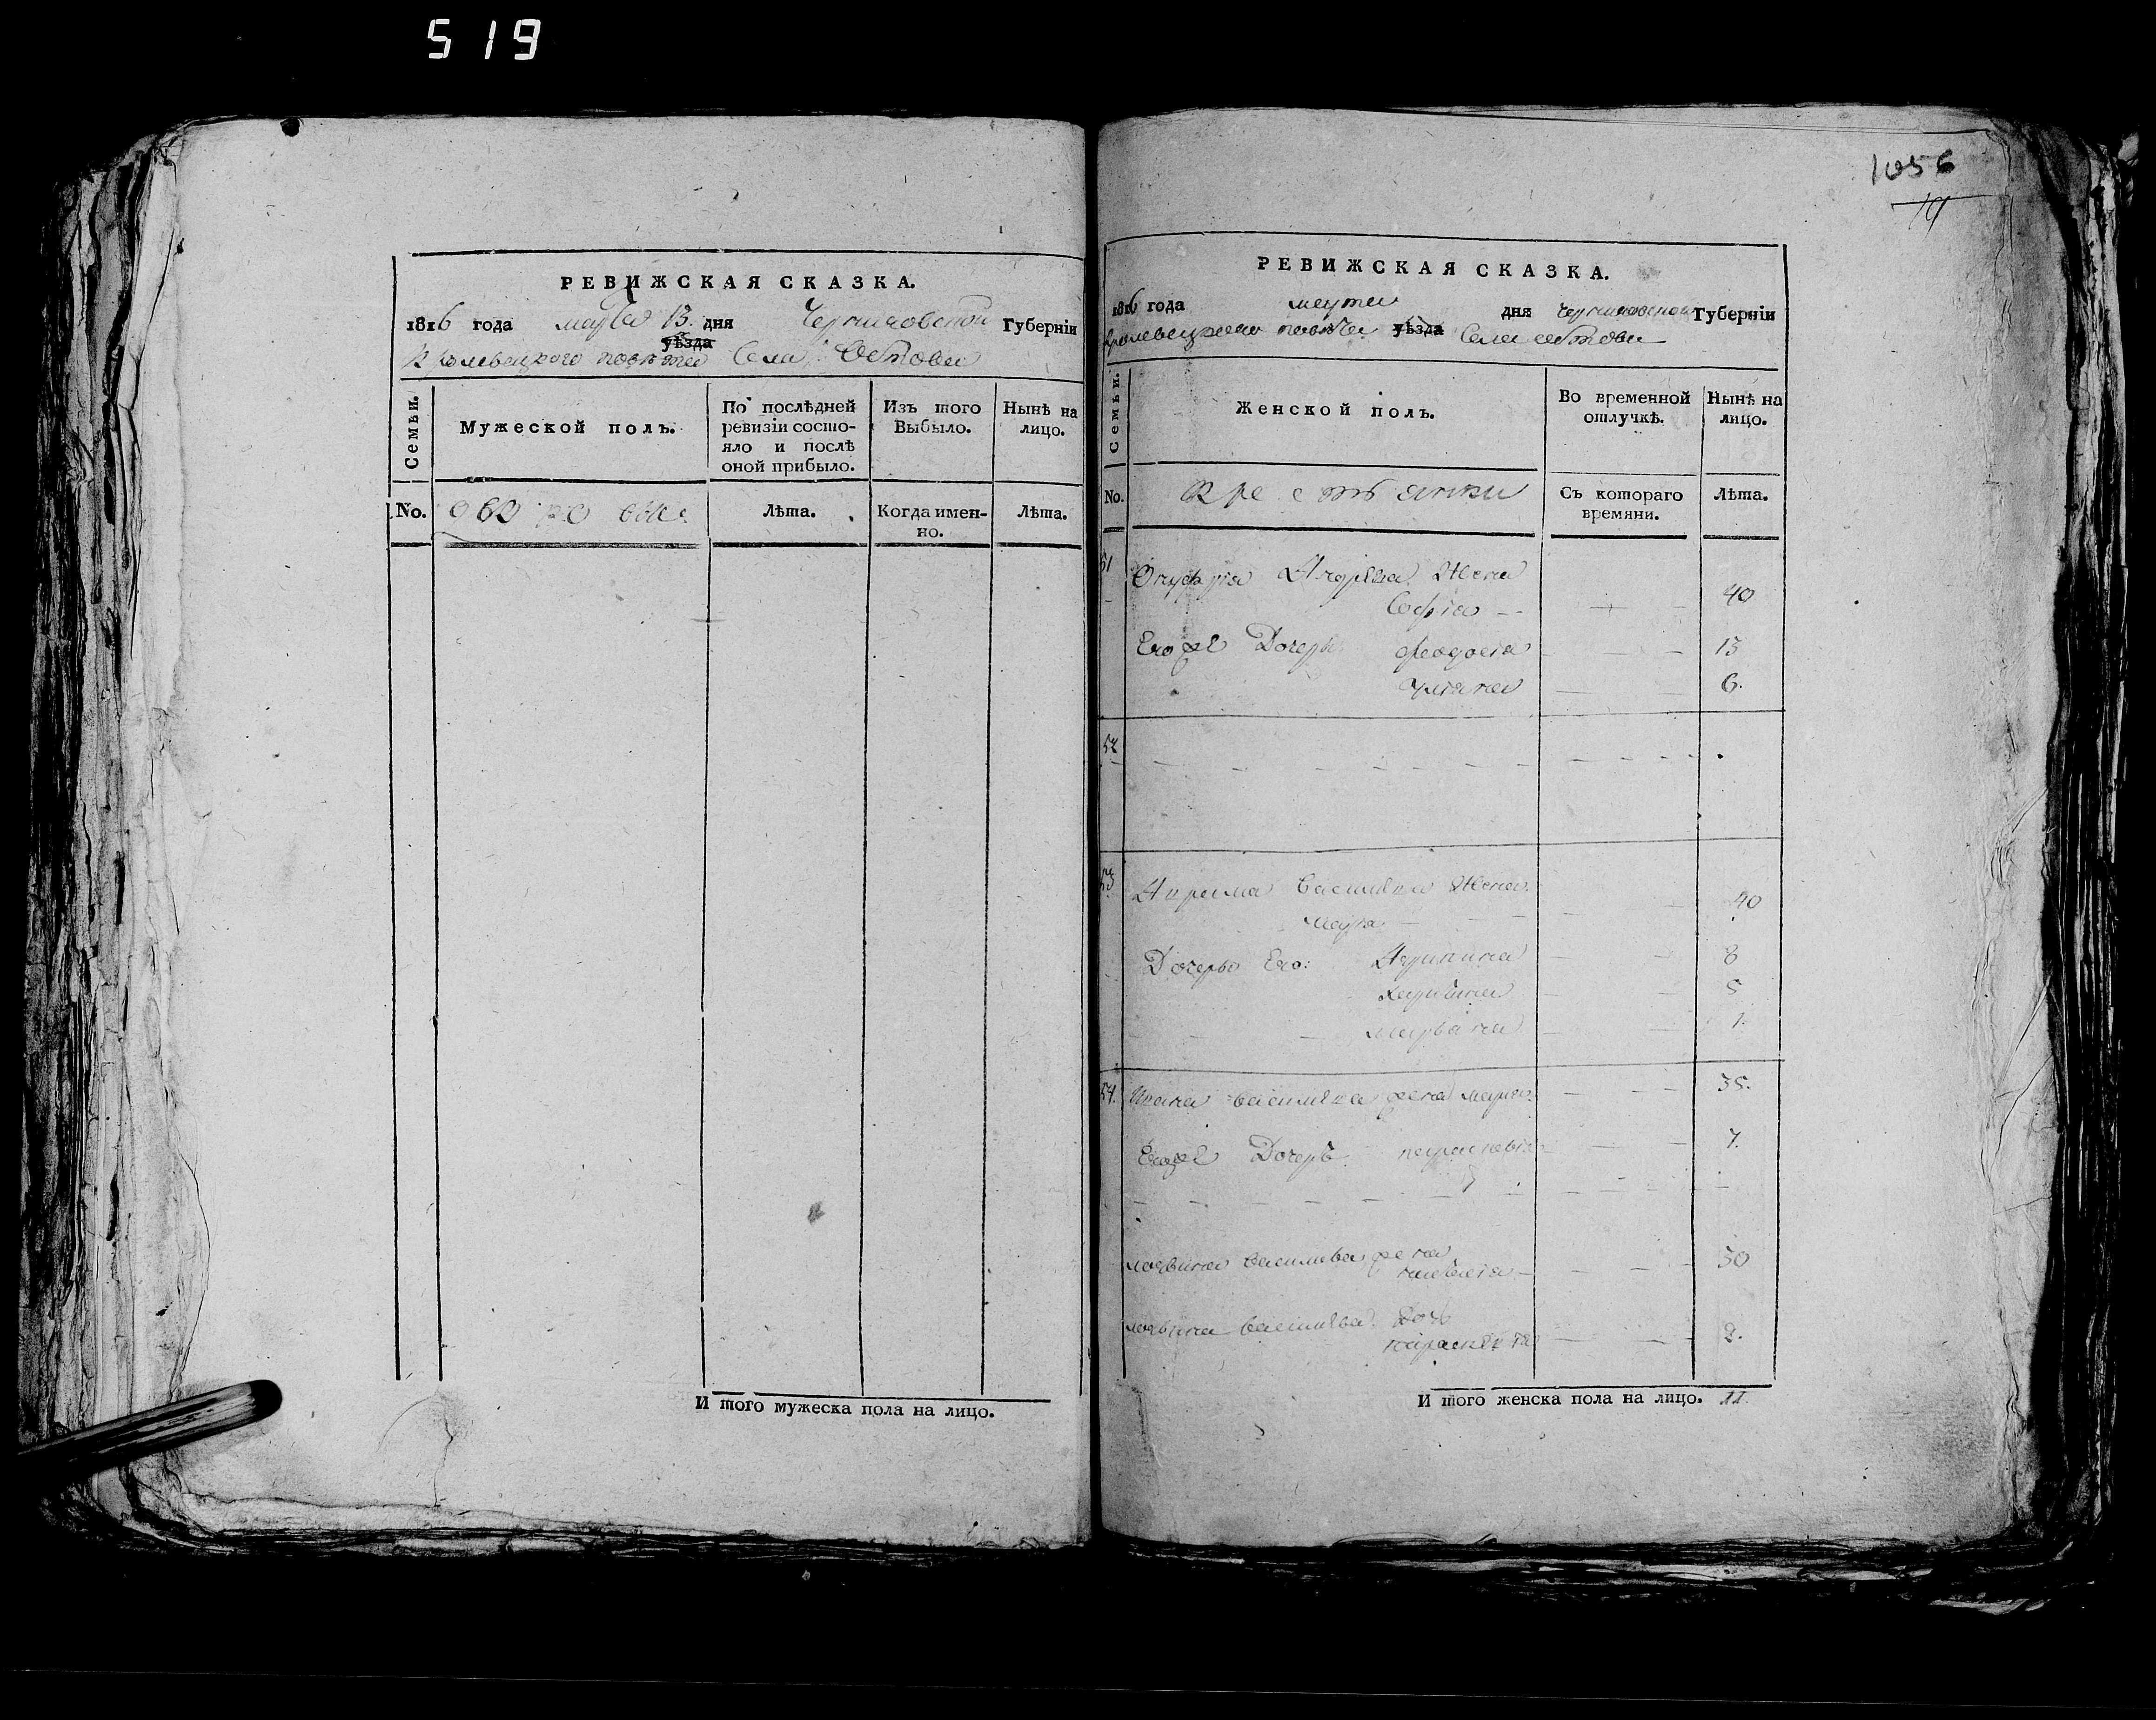 519
1056
19
РЕВИЖСКАЯ СКАЗКА.
1816 года марта 13. дня Черниговской Губерніи
уѣзда
Кролевецкого повѣта Села
Семьи.
Мужеской полъ.
По послѣдней ревизіи состо-
яло и послѣ
оной прибыло.
Изъ того
Выбыло.
Нынѣ на
лицо.
No.
Лѣта.
Когда имен-
но.
Лѣта.
И того мужеска пола на лицо.
РЕВИЖСКАЯ СКАЗКА.
1816 года марта дня Черниговской Губерніи
Кролевецкого повѣта уѣзда Села
Семьи.
Женской полъ.
Во временной
отлучкѣ.
Нынѣ на
лицо.
No.
Крестьянки
Съ котораго
времяни.
Лѣта.
51 Онуфрія Андрѣева Жена
Софія 40
Егоже Дочери Феодосія 13
Уліана 6.
52
53 Василіева Жена
Марія 40
Дочери Его: Агрипина 8
5
Маріана 1.
54. Ивана Василіева жена Марія 35.
Егоже Дочерь параскевія 7.
Логвина Василіева жена
30
Логвина Василіева Дочь
параскевія 2.
И того женска пола на лицо. 11.